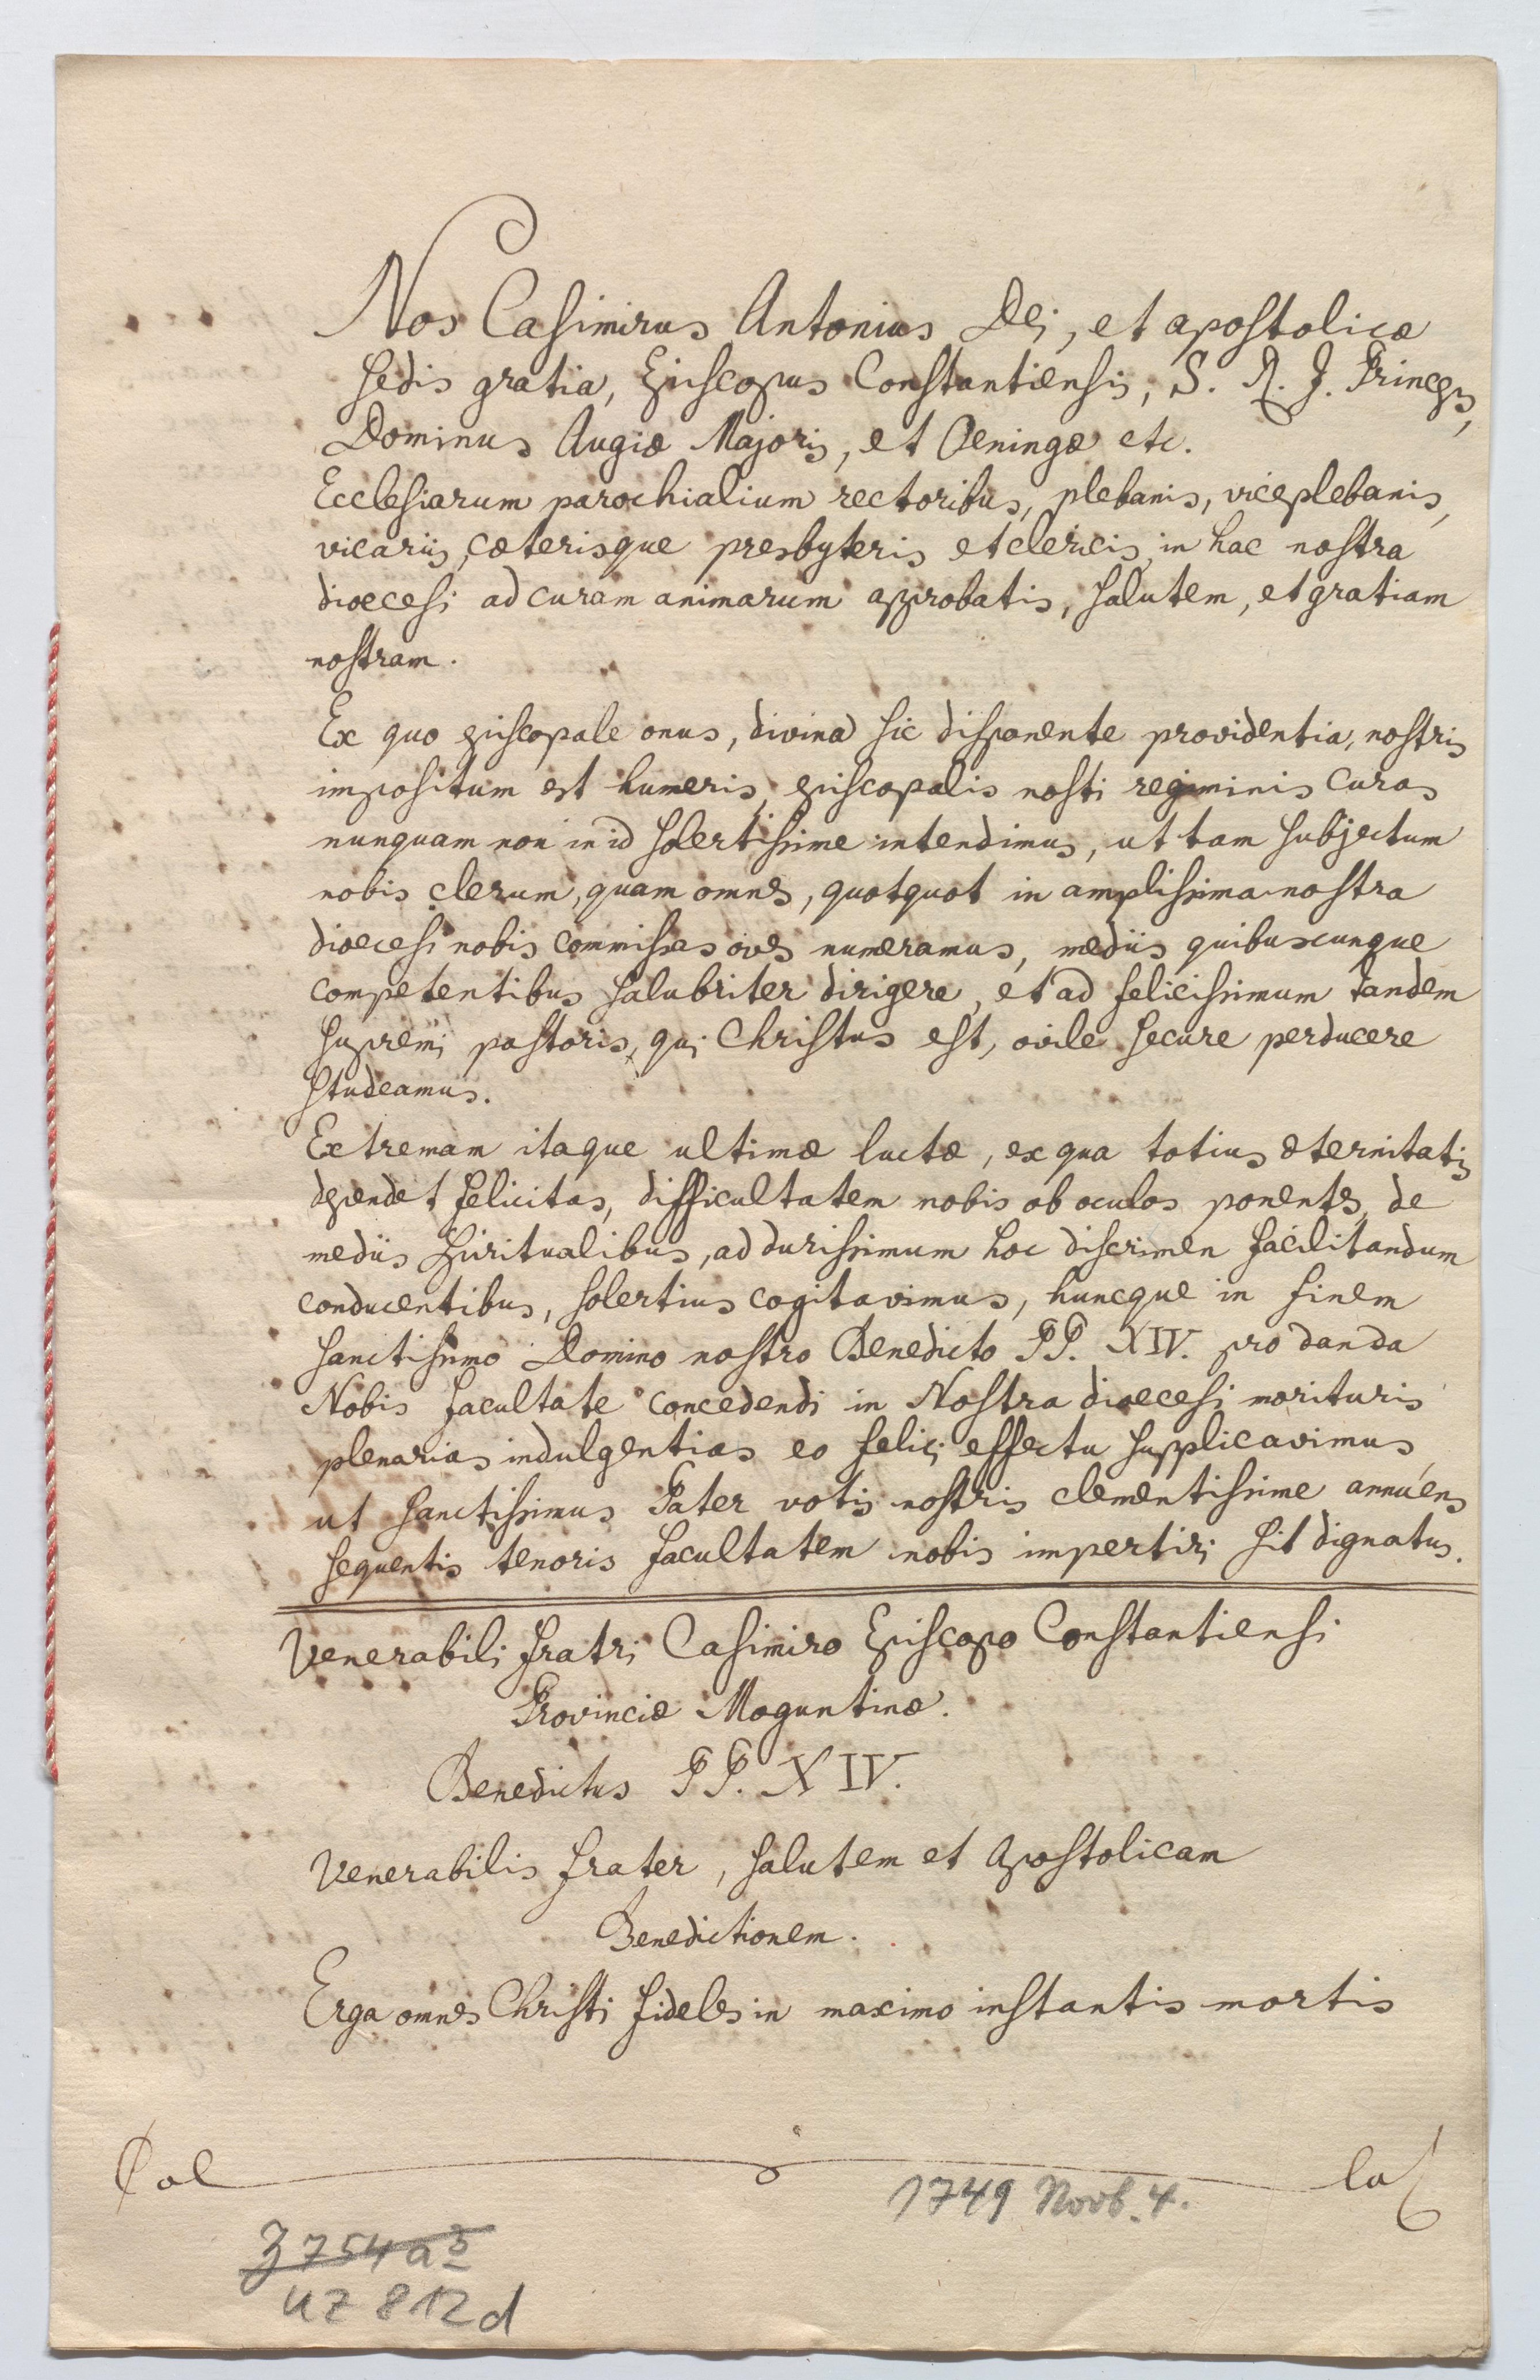 Nos Casimirus Antonius Dei, et apostolicæ
sedis gratia, Episcopus Constantiensis, S. R. J. Princeps,
Dominus Augiæ Majoris, et Oeningæ etc.
Ecclesiarum parochialium rectoribus, plebanis, viceplebanis,
vicariis, cæterisque presbyteris et clericis, in hac nostra
dioecesi ad curam animarum approbatis, salutem, et gratiam
nostram.
Ex quo episcopale onus, divina sic disponente providentia, nostris
impositum est humeris, episcopalis nosti regiminis curas
nunquam non in id solertissime intendimus, ut tam subjectum
nobis clerum, quam omnes, quotquot in amplissima nostra
dioecesi nobis commissas oves numeramus, mediis quibuscunque
competentibus salubriter dirigere, et ad felicissimum tandem
supremi pastoris, qui Christus est, ovile secure perducere
studeamus.
Extremam itaque ultimæ luctæ, ex qua totius æternitatis
dependet felicitas, difficultatem nobis ob oculos ponentes, de
mediis spiritualibus, ad durissimum hoc discrimen facilitandum
conducentibus, solertius cogitavimus, huncque in finem
sanctissimo Domino nostro Benedicto PP. XIV. pro danda
Nobis facultate concedendi in Nostra dioecesi morituris
plenarias indulgentias eo felici effectu supplicavimus,
ut sanctissimus Pater votis nostris clementissime annuens
sequentis tenoris facultatem nobis impertiri sit dignatus.
Venerabili fratri Casimiro Episcopo Constantiensi
Provinciæ Moguntinæ.
Benedictus PP. XIV.
Venerabilis frater, salutem et Apostolicam
Benedictionem.
Erga omnes Christi fideles in maximo instantis mortis
1749 Novb. 4.
3754 a 3
UZ 812d